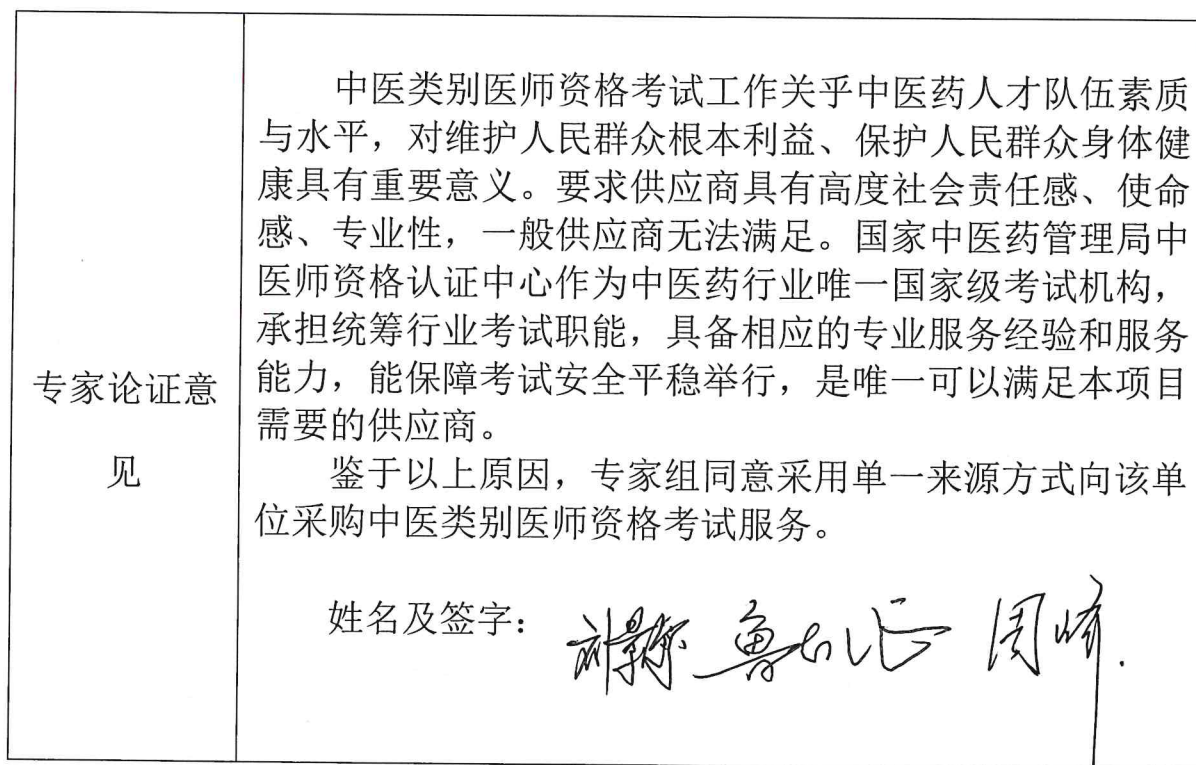 中医类别医师资格考试工作关乎中医药人才队伍素质
与水平，对维护人民群众根本利益、保护人民群众身体健
康具有重要意义。要求供应商具有高度社会责任感、使命
感、专业性，一般供应商无法满足。国家中医药管理局中
医师资格认证中心作为中医药行业唯一国家级考试机构，
承担统筹行业考试职能，具备相应的专业服务经验和服务
能力，能保障考试安全平稳举行，是唯一可以满足本项目
需要的供应商。
鉴于以上原因，专家组同意采用单一来源方式向该单
位采购中医类别医师资格考试服务。
专家论证意
见
姓名及签字：